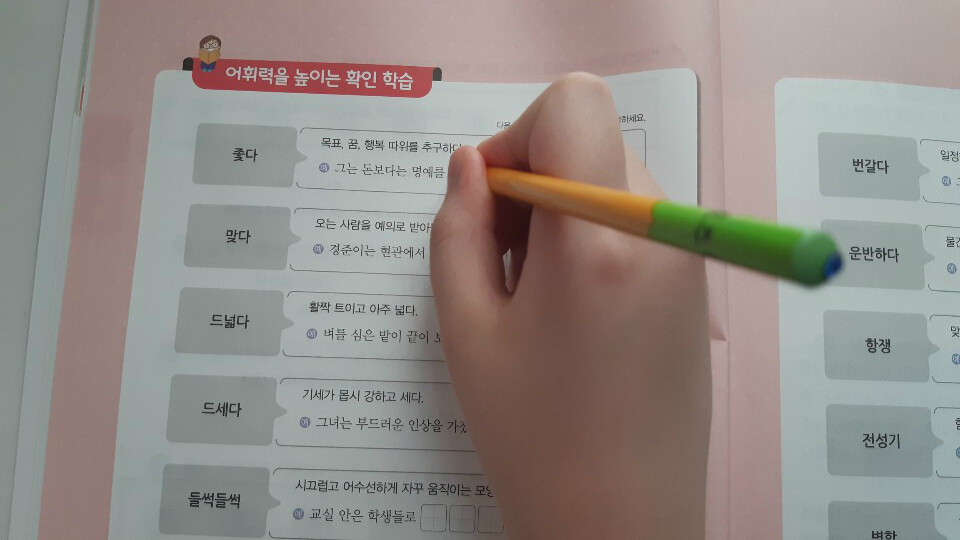 어휘력을 높이는 확인 학습
하세요.
좇다
목표, 꿈, 행복 따위를 추구하다
예 그는 돈보다는 명예를
맞다
오는 사람을 예의로 받아
예 경준이는 현관에서
드넓다
활짝 트이고 아주 넓다.
예 벼를 심은 밭이 끝이
드세다
기세가 몹시 강하고 세다.
예 그녀는 부드러운 인상을
들썩들썩
시끄럽고 어수선하게 자꾸 움직이는 모양
예 교실 안은 학생들로
번갈다
운반하다
항쟁
전성기